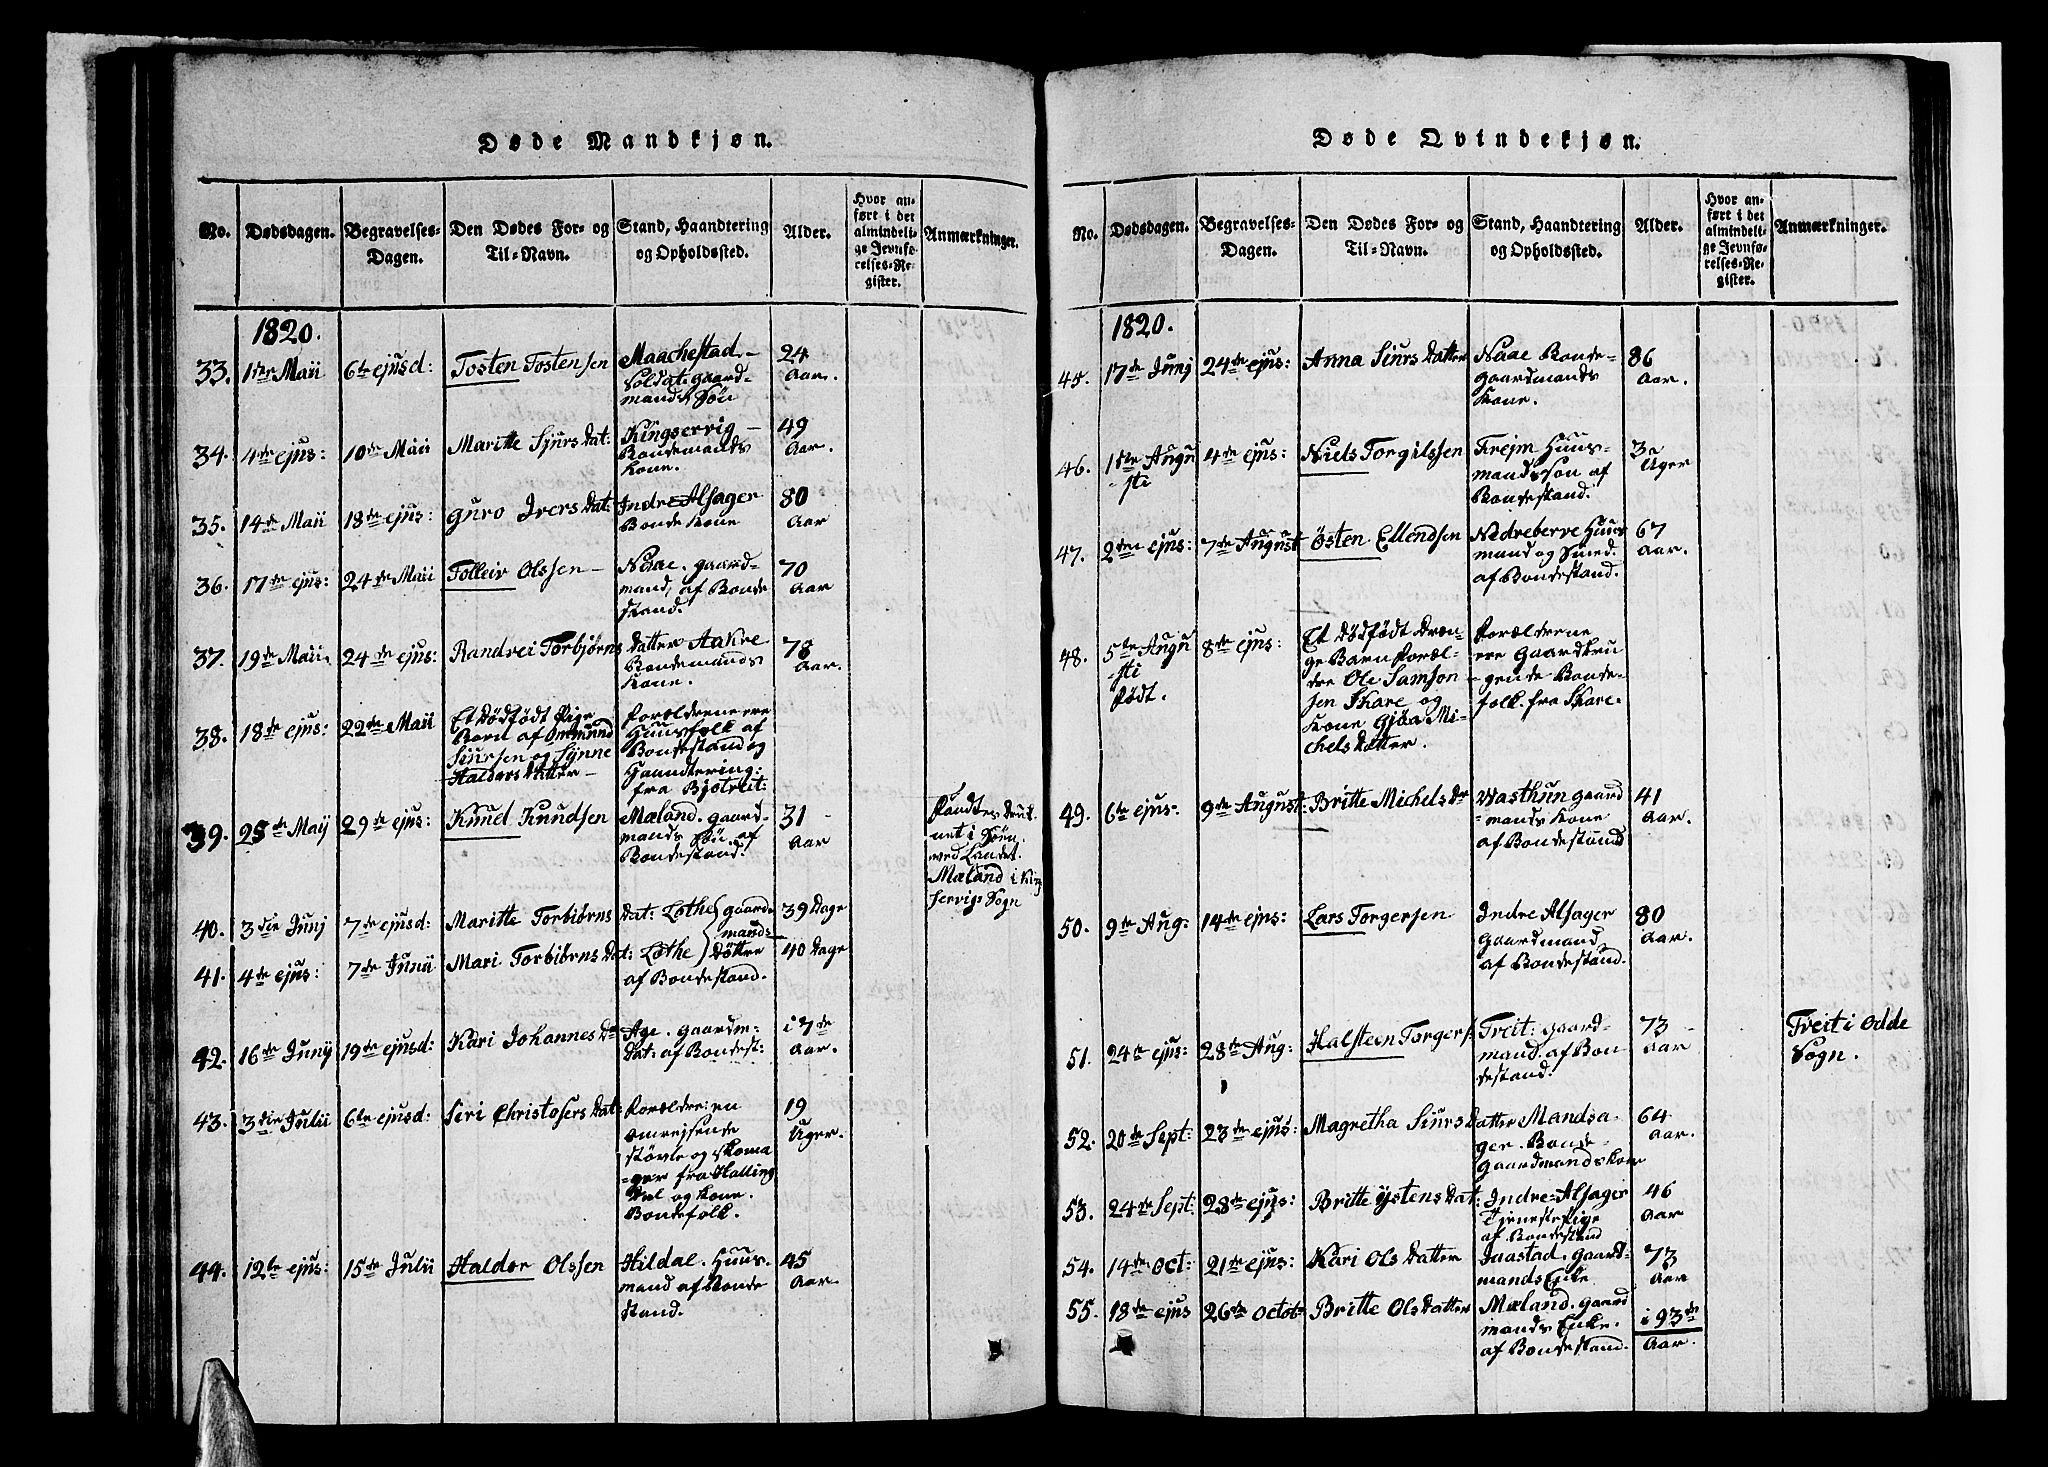 Døde Mandkjøn.
No. Dødsdagen. Begravelses-Dagen. Den Dødes For- og Til-Navn. Stand, Haandtering og Opholdssted. Alder. Hvor anført i det almindelige Jevnførelses-Register. Anmærkninger.
1820.
33. 1ste Maii 6te ejusd: Tosten Tostensen Maachestad –
Soldat: gaard-
mands Søn
24
Aar.
34. 4de ejus: 10de Maii Maritte Sjurs dat: Kingservig –
Bondemands
Kone.
49
Aar.
35. 14de Maii 18de ejus: Guro Ivers Dat: Indre Alsager
Bonde Kone
80
Aar
36. 17de ejus: 24de Maii Tolleiv Olssen – Naae. gaard-
mand, af Bonde
stand.
70
Aar
37. 19de Maii 24de ejus: Randvei Torbjørns Datter Aakre
Bondemands
Kone.
78
Aar.
38. 18de ejus: 22de Maii Et Dødfødt Pige
Barn af Ommund
Siursen og Synne
Haldors Datter –
Forældrene ere
Huusfolk af
Bondestand og
Haandtering:
fra Bjotveit:
39. 25de Maij 29de ejus: Knud Knudsen Mæland. gaard-
mands Søn. af
Bondestand.
31
Aar
Fandtes druk-
net i Søen.
ved Landet.
Mæland i King
servigs Sogn
40. 3die Junj 7de ejusd: Maritte Torbiørns Dat: Lothe gaard-
mands
39 Dage
41. 4de ejus: 7de Junii Mari Torbiørns Dat: Lothe Døttre
af Bondestand.
40 Dage
42. 16de Junij 19de ejusd: Kari Johannes Dr Age. gaardm-
Dat: af Bondest:
i 7de
Aar.
43. 3die Julii 6te ejusd: Siri Christofers Dat: Forældre: en
omrejsende
støvle og skoma
-ger fra Halling
dal og Kone.
Bondefolk.
19
Uger.
44. 12te ejus: 15de Julii Haldor Olssen Hildal. Huus-
mand af Bonde
stand.
45
Aar.
Døde Qvindekjøn.
No. Dødsdagen. Begravelses-Dagen. Den Dødes For- og Til-Navn. Stand, Haandtering og Opholdssted. Alder. Hvor anført i det almindelige Jevnførelses-Register. Anmærkninger.
1820.
45. 17de Junj 24de ejus: Anna Siurs Datter Naae Bonde-
gaardmands
Kone.
86
Aar.
46. 1ste Augu
-sti
4de ejus: Niels Torgilssen Trejm Huus-
mandsson af
Bondestand.
Uger
47. 2den ejus: 7de August Östen Ellendsen Nedreberve Huus
mand og Smed.
af Bondestand.
67
Aar.
48. 5te Augu
-sti
Født.
8de ejus: Et Dødfødt Dren-
ge Barn Foræl-
dre Ole Samson
sen Skare og
Kone Gjöa Mi-
chels Datter.
Forældrene
ere Gaardbru
-gende Bonde-
folk. fra Skare.
49. 6te ejus: 9de August: Britte Michels Dr Wasthun gaard
-mands Kone
af Bondestand
41
Aar.
50. 9de Aug: 14de ejus: Lars Torgersen Indre Alsager
Gaardmand
af Bondestand.
80
Aar.
51. 24de ejus: 28de Aug: Halsteen Torgers: Treit: gaard-
mand. af Bon
destand.
73
Aar
Treit i Odde
Sogn.
52. 20de Sept: 23de ejus: Magretha Siurs Datter Mandsa-
ger. Bonde-
gaardmands Kone
64
Aar.
53. 24de Sept: 28de ejus: Britte Ystens Dat: Indre-Alsager
Tjenestepige
af Bondestand
46
Aar
54. 14de Oct: 21de ejus: Kari Ols Datter Jaastad. gaard-
mands Enke
73
Aar
55. 18de ejus 26de Octob: Britte Ols Datter Mæland. gaard
mands Enke.
af Bondestand.
i 93de
Aar.